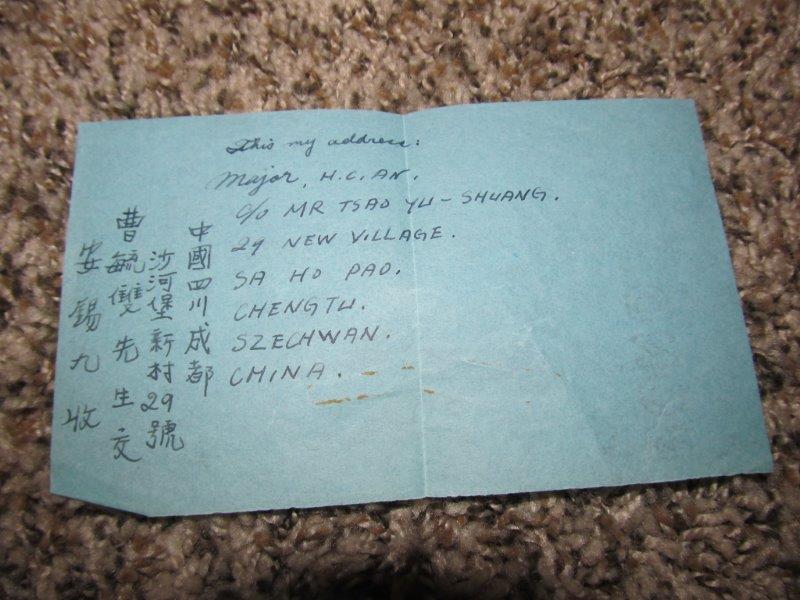 This my address:
Major, H.C. AN.
c/o MR TSAO YU-SHUANG.
29 NEW VILLAGE.
SA HO PAO.
CHENGTU.
SZECHWAN.
CHINA.
中國四川成都
沙河堡新村29號
曹毓雙先生交
安錫九收